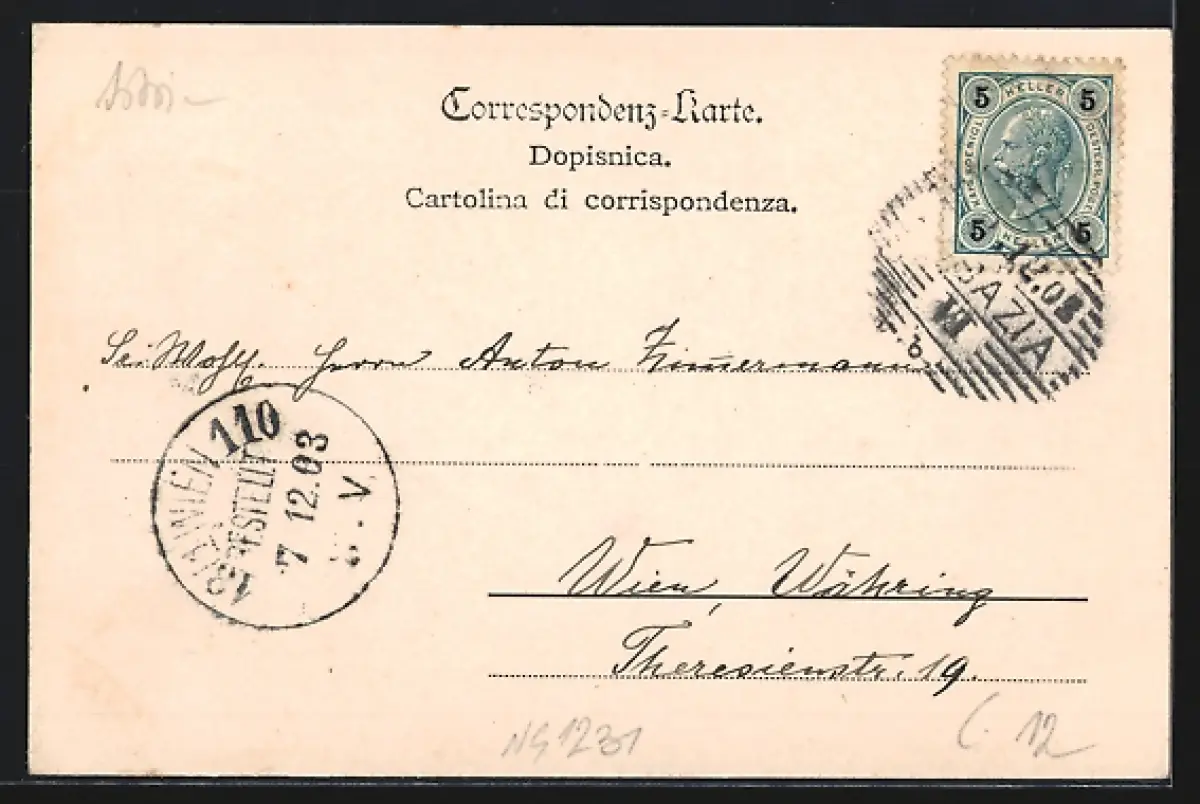 Correspondenz-Karte.
Dopisnica.
Cartolina di corrispondenza.
5 HELLER 5
5 HELLER 5
12.03
BAZIA
Sr. Wohl. Herrn Anton Zimmermann
110
18/1 WIEN
BESTELLT
7 12.03
V
Wien, Währing
Theresienstr. 19.
NG1231
12